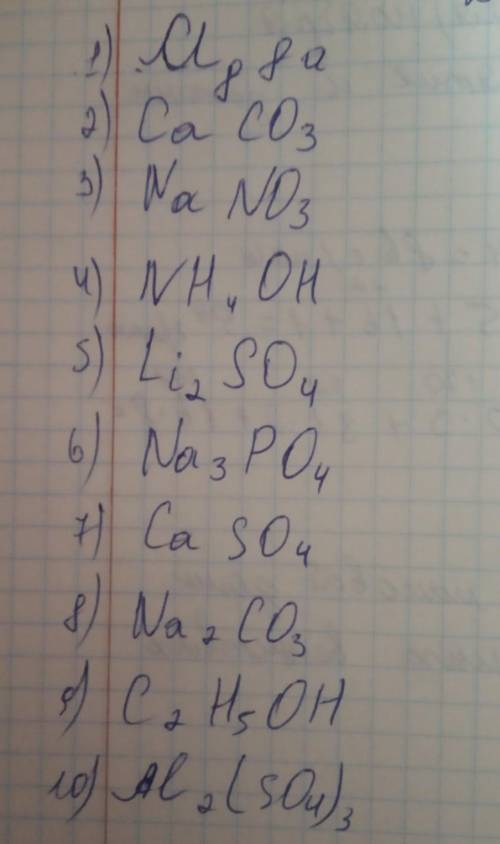 1)
2) CaCO₃
3) NaNO₃
4) NH₄OH
5) Li₂SO₄
6) Na₃PO₄
7) CaSO₄
8) Na₂CO₃
9) C₂H₅OH
10) Al₂(SO₄)₃